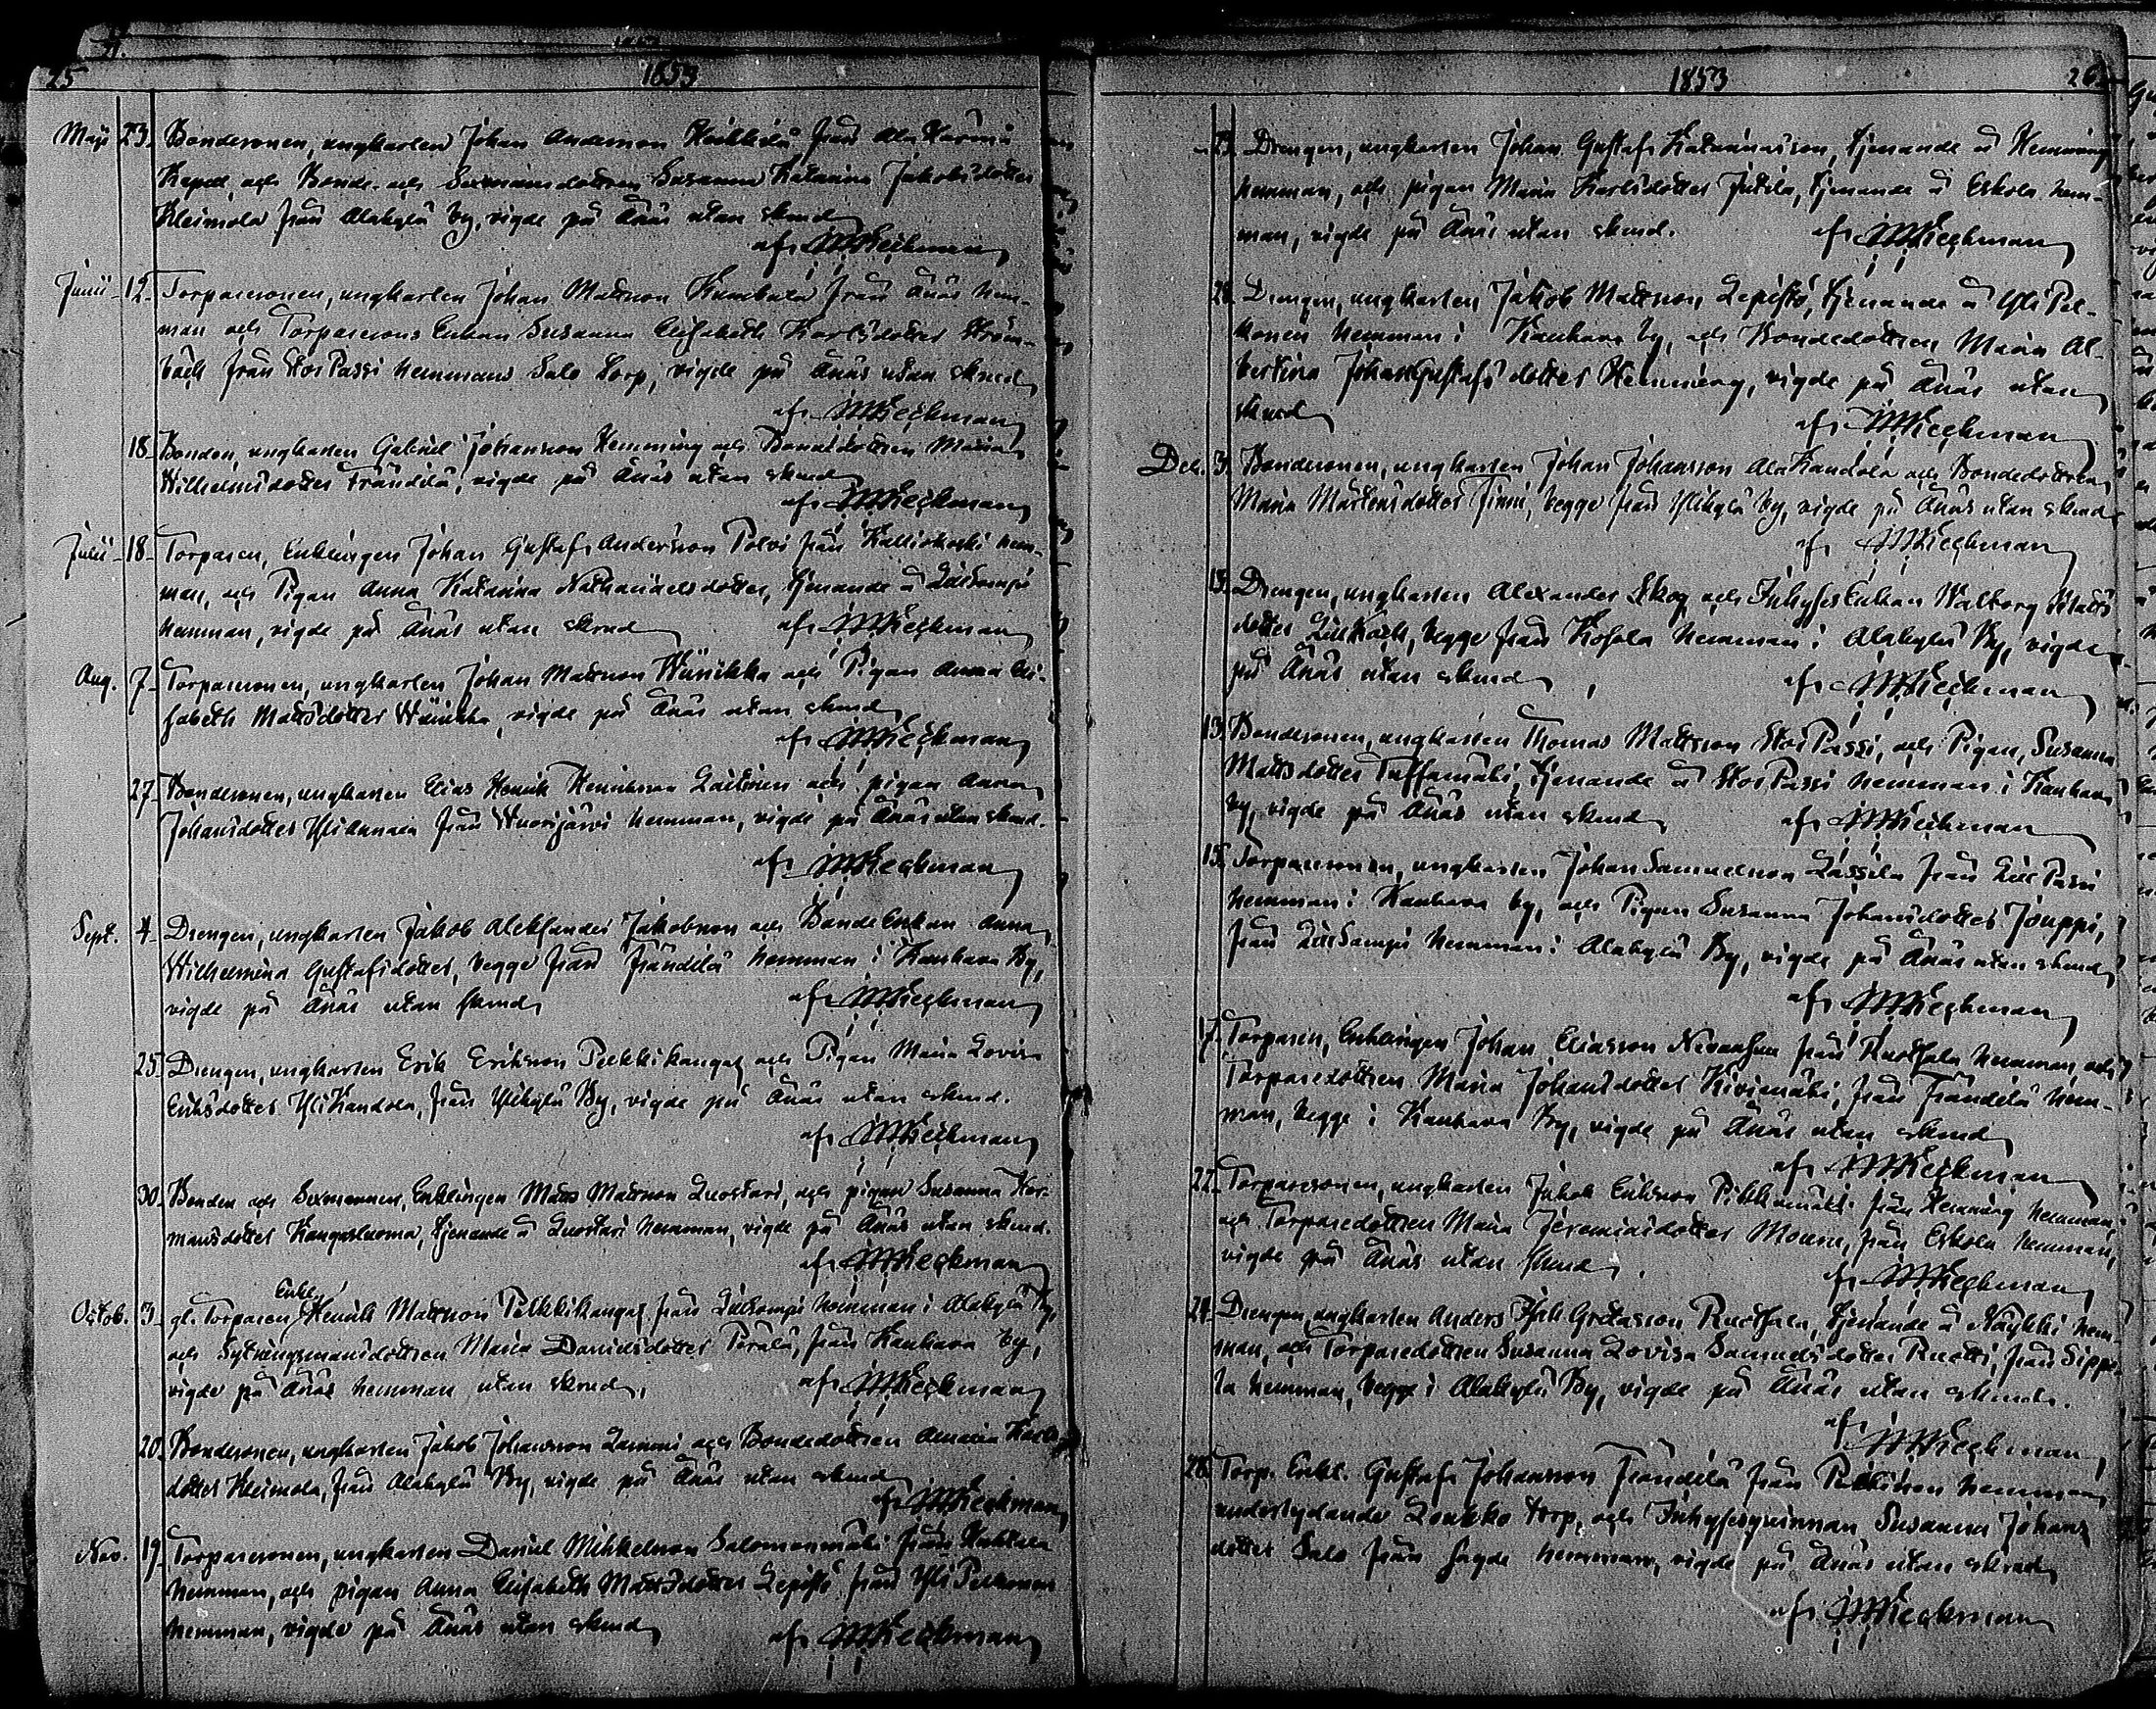 25
1853
Maji 23. Bondesonen, ungkarlen Johan Andersson Heikkilä från Ala Härmä
Kapell, och Bonde- och Sexmansdottren Susanna Katarina Jakobsdotter
Kleimola från Alakylä by, vigde på Ånäs utan skrud
af
Junii 12. Torparesonen, ungkarlen Johan Mattsson från Ånäs hem-
man och Torparesons Enkan Susanna Elisabeth Karlsdotter Ström-
bäck från Stor Passi hemmans Salo torp, vigde på Ånäs utan skrud
af
18. Bonden, ungkarlen Gabriel Johansson Hemming och Bondedottren Maria
Wilhelmsdotter Frändilä, vigde på Ånäs utan skrud
af
Julii 18. Torparen, Enklingen Johan Gustaf Andersson Polvi från Kalliokoski hem-
man, och Pigan Anna Katarina Nathanaelsdotter, tjenande å Lillsampu
hemman, vigde på Ånäs utan skrud af
Aug. 7. Torparesonen, ungkarlen Johan Mattsson Wiinikka och Pigan Anna Eli-
sabeth Mattsdotter Wiinikka, vigde på Ånäs utan skrud
af
27. Bondesonen, ungkarlen Elias Henrik Henriksson Laitinen och pigan Anna
Johansdotter Yliannala från Wuorijärvi hemman, vigde på Ånäs utan skrud.
af
Sept. 4. Drengen, ungkarlen Jakob Alexander Jakobsson och BondeEnkan Anna
Wilhelmina Gustafsdotter, begge från Frändilä hemman i Kauhava By,
vigde på Ånäs utan skrud af
25. Drengen, ungkarlen Erik Eriksson Pelkkikangas och Pigan Maria Lovisa
Eriksdotter YliKandola, från Ylikylä By, vigde på Ånäs utan skrud.
af
30. Bonden och Sexmannen, Enklingen Matts Mattsson Luostari, och pigan Susanna Her-
mansdotter Kangasluoma, tjenande å Luostari hemman, vigde på Ånäs utan skrud.
af
Octob. 3. gl. Torparen, Enkl. Henrik Mattsson Pelkkikangas från Lillsampu hemman i Alakylä By,
och Sytningsmansdottren Maria Danielsdotter Perälä, från Kauhava by,
vigde på Ånäs hemman utan skrud, af
20. Bondesonen, ungkarlen Jakob Johansson Lammi och Bondedottren Amalia Karls-
dotter Kleimola, från Alakylä By, vigde på Ånäs utan skrud
af
Nov. 19. Torparesonen, ungkarlen Daniel Mihkelsson Salomonmäki från Huhtala
hemman, och pigan Anna Elisabeth Mattsdotter Lepistö från Yli Pelkonen
hemman, vigde på Ånäs utan skrud af
1853
26
Drengen, ungkarlen Johan Gustaf Katarinasson, tjenande å Hemming
hemman, och pigan Maria Karlsdotter Jutila, tjenande å Eskola hem-
man, vigde på Ånäs utan skrud. af
28. Drengen, ungkarlen Jakob Mattsson Lepistö, tjenande å Yli Pel-
konen hemman i Kauhava by, och Bondedottren Maria Al-
bertina JohanGustafsdotter Hemming, vigde på Ånäs utan
skrud af
Dec. 3. Bondesonen, ungkarlen Johan Johansson AlaKandola och Bondedottren
Maria Mårtensdotter Finni, begge från Ylikylä By, vigde på Ånäs utan skrud
af
Drengen, ungkarlen Alexander Skog och InhysesEnkan Walborg Matts-
dotter begge från Kosola hemman i Alakylä By, vigde
på Ånäs utan skrud, af
13. Bondesonen, ungkarlen Thomas Mattsson Stor Passi, och Pigan, Susanna
Mattsdotter Tuffamäki, tjenande å Stor Passi hemman i Kauhava
by, vigde på Ånäs utan skrud af
15. Torparesonen, ungkarlen Johan Samuelsson Lassila från Lill Passi
hemman i Kauhava by, och Pigan Susanna Johansdotter Jouppi,
från Lillsampu hemman i Alakylä By, vigde på Ånäs utan skrud
af
17. Torparen, Enklingen Johan Eliasson från Ruotsala hemman, och
Torparedottren Maria Johansdotter Kivimäki, från Frändilä hem-
man, begge i Kauhava By, vigde på Ånäs utan skrud
af
22. Torparesonen, ungkarlen Jakob Eriksson från Hemming hemman,
och Torparedottren Maria Jeremiasdotter från Eskola hemman,
vigde på Ånäs utan skrud, af
Drengen, ungkarlen Anders Gretasson Ruotsala, tjenande å Näykki hem-
man, och Torparedottren Susanna Lovisa Samuelsdotter Ruotti, från Sippo-
la hemman, begge i Alakylä By, vigde på Ånäs utan skrud.
af
28. Torp. Enkl. Gustaf Johansson Frändilä från hemman
underlydande Loukko torp, och Inhysesqvinnan Susanna Johans-
dotter Salo från sagde hemman, vigde på Ånäs utan skrud
af